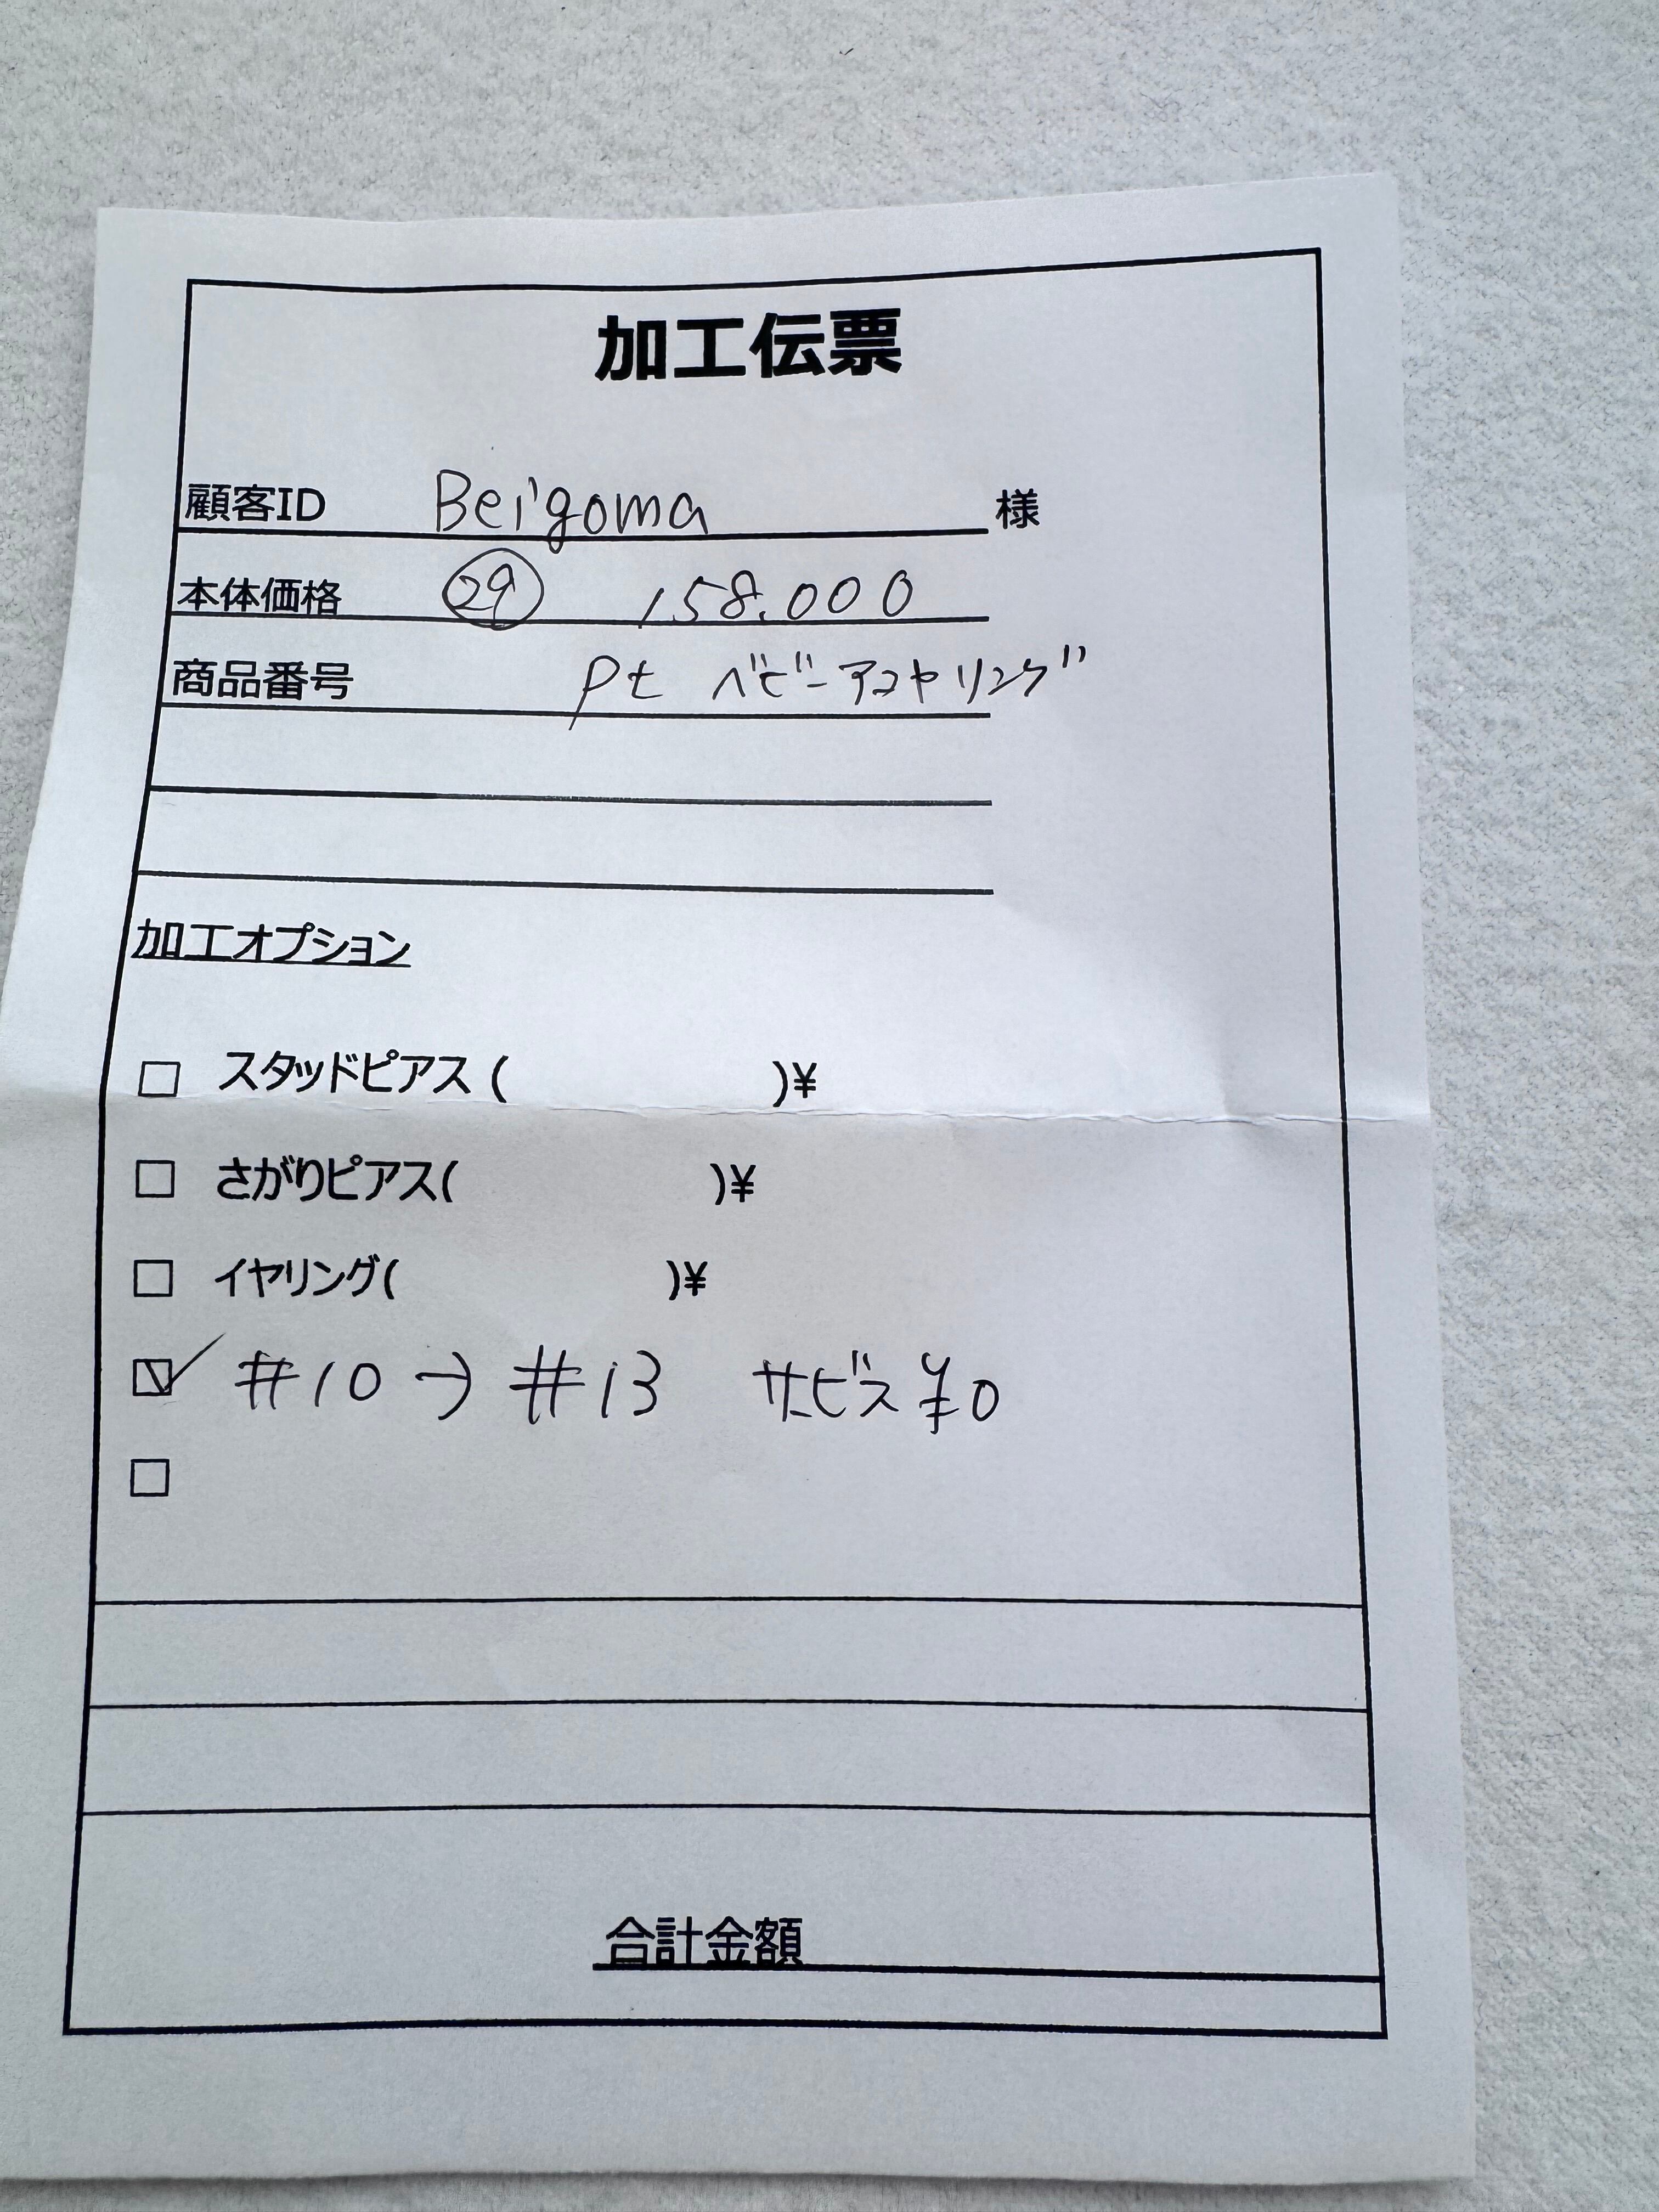 加工伝票
顧客ID Beigoma 様
本体価格 ㉙ 158.000
商品番号 Pt ベビーアコヤリング
加工オプション
□ スタッドピアス ( )¥
□ さがりピアス( )¥
□ イヤリング( )¥
☑ #10→#13 サービス ¥0
□
合計金額